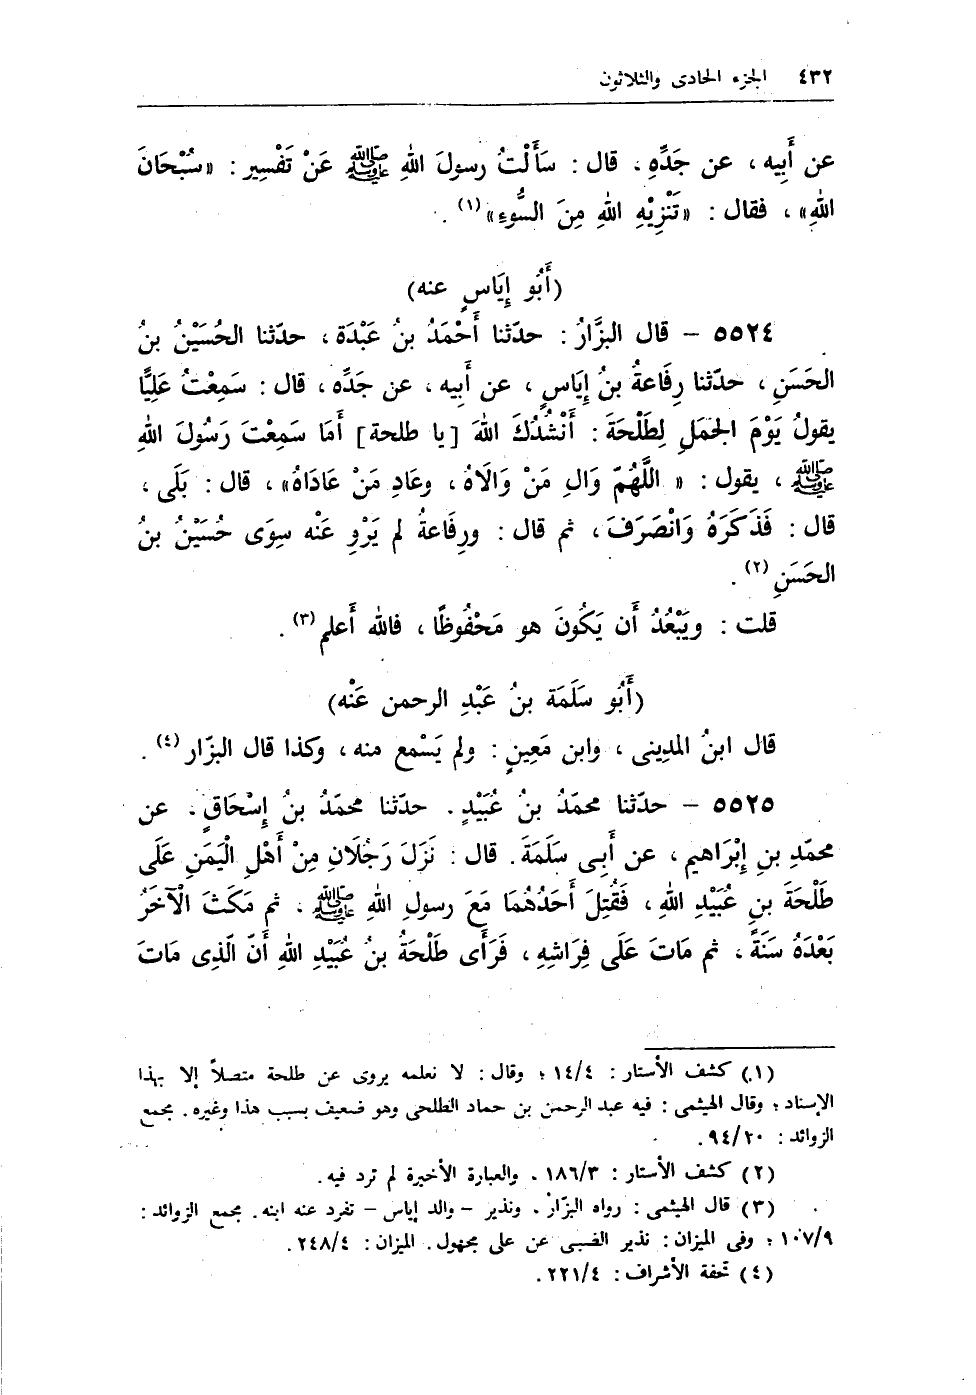 ٤٣٢ الجزء الحادى والثلاثون
عن أَبِيه ، عن جَدِّهِ . قال : سَأَلْتُ رسولَ اللهِ ﷺ عَنْ تَفْسِيرِ : «سُبْحَانَ
اللهِ» ، فقال : «تَنْزِيْهِ اللهِ مِنَ السُّوءِ»(١) .
(أَبُو إِيَاسٍ عنه)
٥٥٢٤ – قال البزَّارُ : حدّثنا أَحْمَدُ بنُ عَبْدَة ، حدّثنا الحُسَيْنُ بنُ
الحَسَنِ ، حدّثنا رِفَاعةُ بنُ إِيَاسٍ ، عن أَبيه ، عن جَدِّه ، قال : سَمِعْتُ عَلِيًّا
يقولُ يَوْمَ الجَمَلِ لِطَلْحَةَ : أَنْشُدُكَ اللهَ [يا طلحة] أَمَا سَمِعْتَ رَسُولَ اللهِ
ﷺ ، يقول : « اللَّهُمّ وَالِ مَنْ وَالَاهُ ، وعَادِ مَنْ عَادَاهُ» ، قال : بَلَى ،
قال : فَذَكَرَهُ وَانْصَرَفَ ، ثم قال : ورِفَاعةُ لم يَرْوِ عَنْه سِوَى حُسَيْنُ بنُ
الحَسَنِ(٢) .
قلت : ويَبْعُدُ أَن يَكُونَ هو مَحْفُوظًا ، فالله أَعلم(٣) .
(أَبُو سَلَمَة بنُ عَبْدِ الرحمن عَنْه)
قال ابنُ المدِينى ، وابن مَعِينٍ : ولم يَسْمع منه ، وكذا قال البزّار(٤) .
٥٥٢٥ – حدّثنا محمّدُ بنُ عُبَيْدٍ . حدّثنا محمّدُ بنُ إِسْحَاقٍ . عن
محمّدِ بنِ إِبْرَاهيم ، عن أَبِى سَلَمَةَ . قال : نَزَلَ رَجُلَانِ مِنْ أَهْلِ الْيَمَنِ عَلَى
طَلْحَةَ بنِ عُبَيْدِ اللهِ ، فَقُتِلَ أَحَدُهُمَا مَعَ رسولِ اللهِ ﷺ . ثم مَكَثَ الْآخَرُ
بَعْدَهُ سَنَةً ، ثم مَاتَ عَلَى فِرَاشِهِ ، فَرَأَى طَلْحَةُ بنُ عُبَيْدِ اللهِ أَنّ الّذِى مَاتَ
(١) كشف الأستار : ١٤/٤ ؛ وقال : لا نعلمه يروى عن طلحة متصلاً إلا بهذا
الإسناد ؛ وقال الهيثمى : فيه عبد الرحمن بن حماد الطلحى وهو ضعيف بسبب هذا وغيره . مجمع
الزوائد : ٩٤/٢٠ .
(٢) كشف الأستار : ١٨٦/٣ . والعبارة الأخيرة لم ترد فيه .
(٣) قال الهيثمى : رواه البزّار . ونذير – والد إياس – تفرد عنه ابنه . مجمع الزوائد :
١٠٧/٩ ؛ وفى الميزان : نذير الضبى عن على مجهول . الميزان : ٢٤٨/٤ .
(٤) تحفة الأشراف : ٢٢١/٤ .